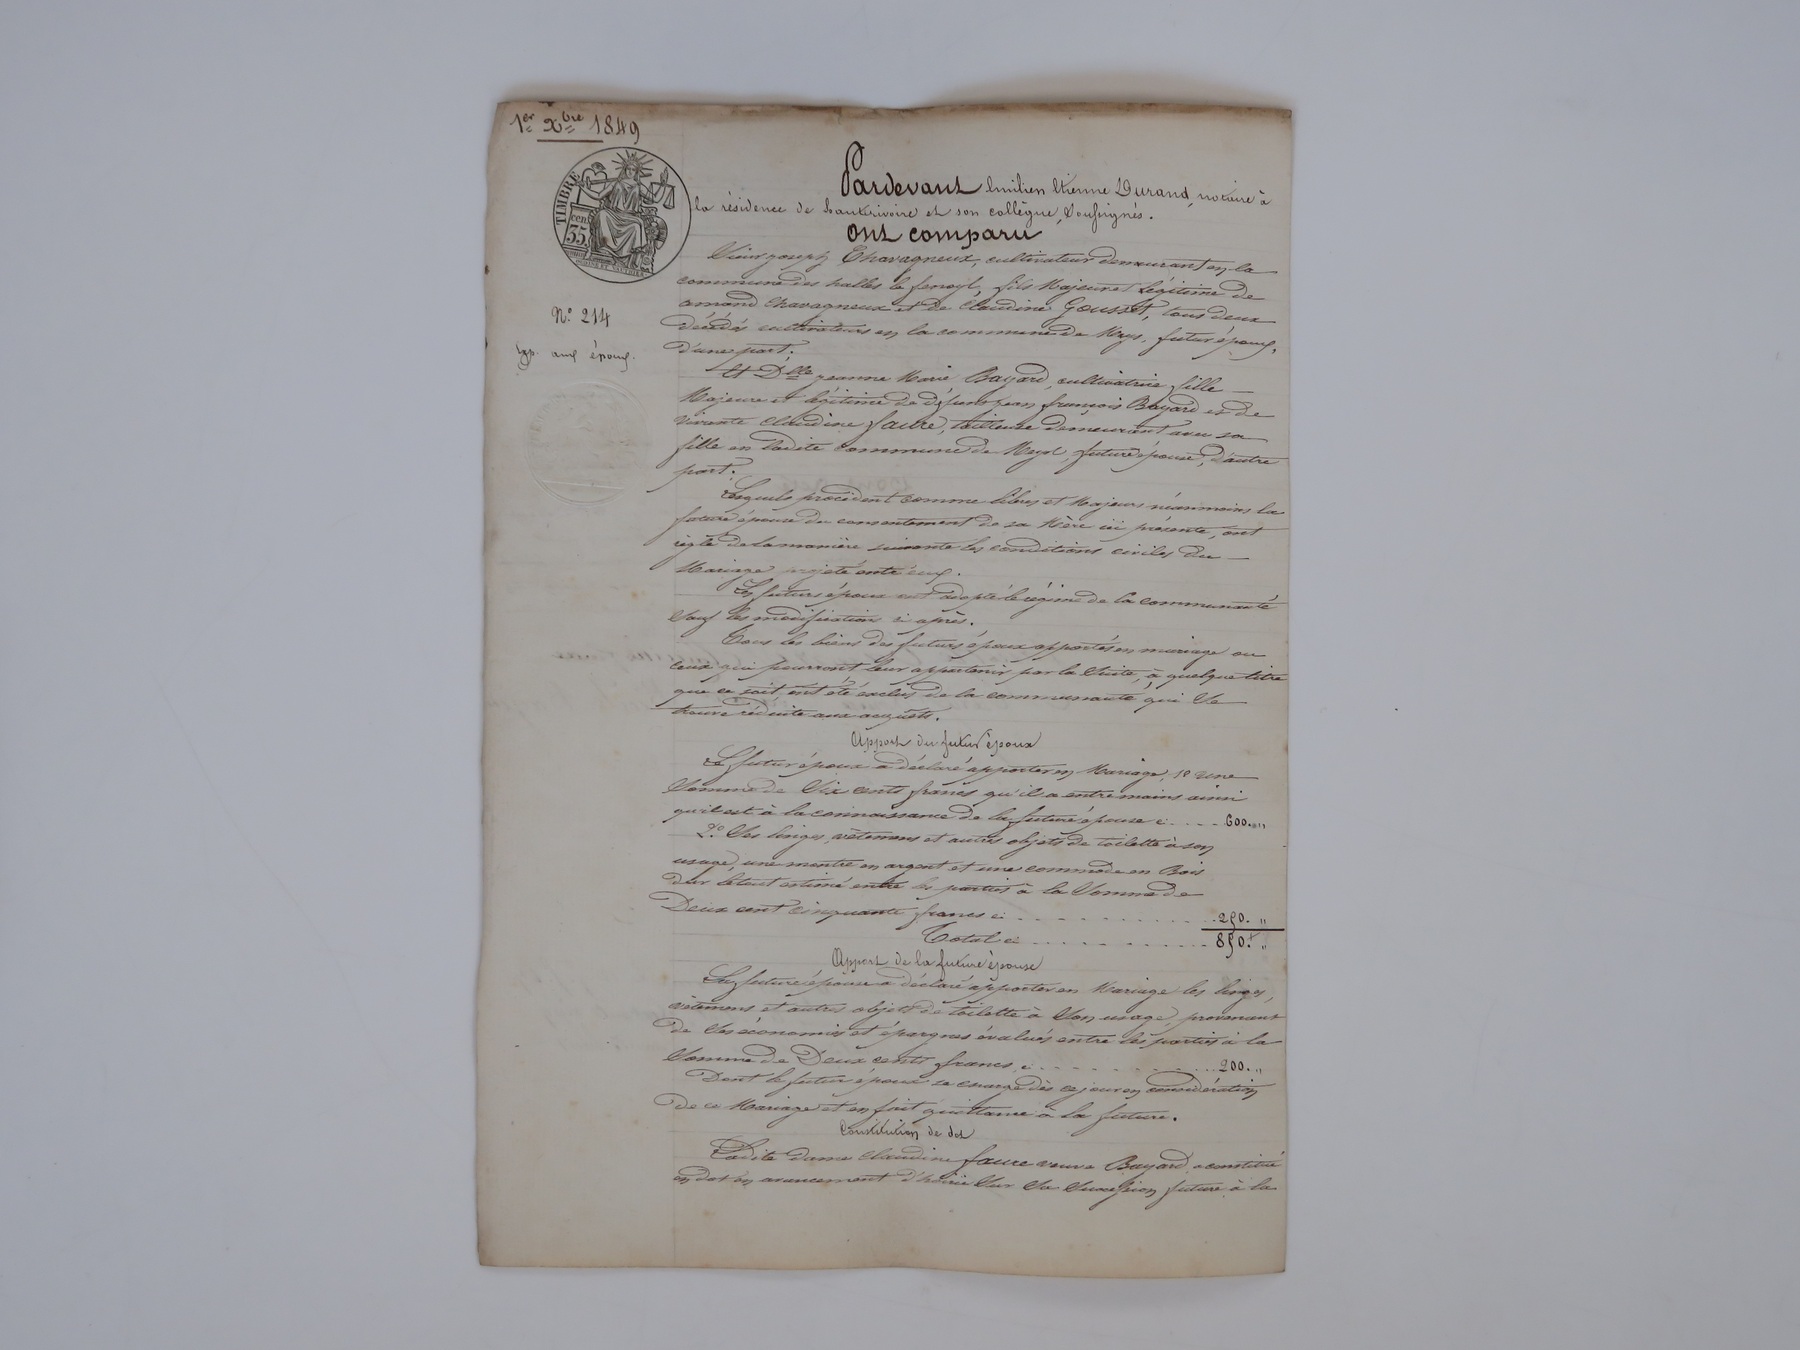 1er Xbre 1849
TIMBRE
35 cen.
Pardevant Emilien Etienne Durand, notaire à
la résidence de hauterivoire et son collègue, Soussignés.
ont comparu
Sieur joseph Chavagneux, cultivateur demeurant en la
commune des halles le fenoyl, fils Majeur et Légitime de
amand Chavagneux et de Claudine Gousset, tous deux
décédés cultivateurs en la commune de Meys, futur époux,
d'une part.
Et Dlle jeanne Marie Bayard, cultivatrice fille
Majeure et légitime de défunt jean françois Bayard et de
vivante Claudine faure, tailleuse demeurant avec sa
fille en ladite commune de Meys, future épouse, d'autre
part.
Lesquels procédent comme libres et Majeurs néanmoins la
future épouse du consentement de sa Mère ici présente, ont
réglé de la manière suivante les conditions civiles du
Mariage projeté entr'eux.
Les futurs époux ont adopté le régime de la communauté
sauf les modifications ci après.
Tous les biens des futurs époux apportés en mariage ou
ceux qui pourront leur appartenir par la Suite, à quelque titre
que ce soit, ont été exclus de la communauté qui Se
trouve réduite aux acquêts.
Apport du futur époux
Le futur époux a déclaré apporter en Mariage, 1° une
Somme de Six cents francs qu'il a entre mains ainsi
qu'il est à la connaissance de la future épouse ci 600. "
2° Ses linges, vêtemens et autres objets de toilette à son
usage, une montre en argent et une commode en Bois
dur le tout estimé entre les parties à la Somme de
Deux cent cinquante francs ci 250. "
Total ci 850. "
Apport de la future épouse
La future épouse a déclaré apporter en Mariage les linges,
vêtemens et autres objets de toilette à Son usage, provenant
de Ses économies et épargnes évalués entre les parties à la
Somme de Deux cents francs, ci 200. "
Dont le futur époux se charge dès ce jour en considération
de ce Mariage et en fait quittance à la future.
Constitution de dot
Ladite dame Claudine faure veuve Bayard, a constitué
en dot en avancement d'hoirie Sur Sa Succession future à la
N° 214
Exp. aux époux.